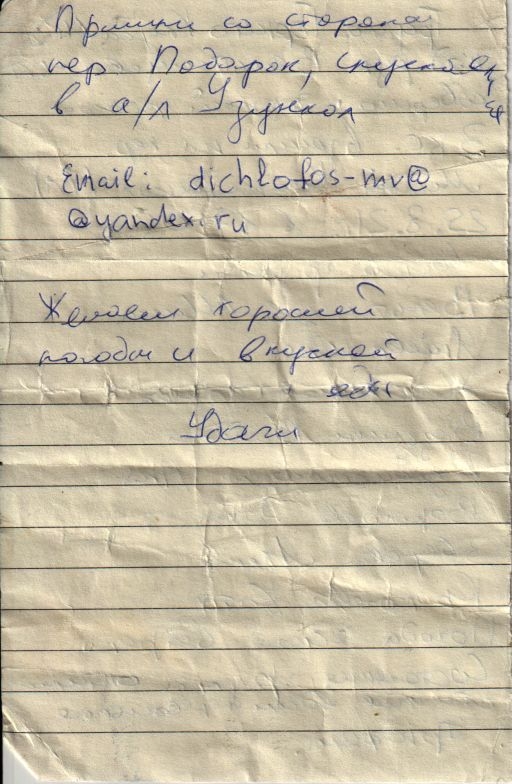 Пришли со стороны
пер. Подарок, спускаемся
в а/л Узункол
Email: dichlofos-mv@
@yandex.ru
Желаем хорошей
погоды и вкусной
еды
Удачи